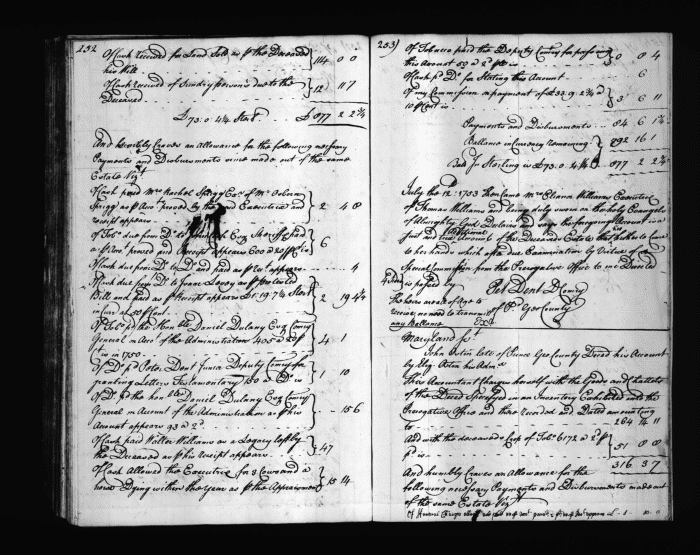 252
Of Cash Received for Land Sold as p the Deceased
his Will 114 0 0
Of Cash received of Sundry persons due to the
Deceased 12 11 7
£73.0.4¼ Sterl £ 877 2 2¾
And humbly Craves an allowance for the following necessary
Payments and Disbursments since made out of the same
Estate Vizt
Of Cash paid Mrs Rachel Sprigg Exx of Mr Osborn
Sprigg as p Accot proved by the said Executrix and
receipt appears 2 4 8
Of Tobo due from Do to Esqr Sheriff and
p Accot proved and Receipt appears 600 6
Of Cash due from Do to Do and paid as p Accot appears 4
Of Cash due from Do to Protested
Bill and paid as p Receipt appears £1.19.7¼ Sterl 2 19 4¼
Of Tobo pd the Honble Daniel Dulany Esqr Comry
General on Accot of the Administration 405 a 20/ p
Ct in 1750 4 1
Of Do pd Peter Dent Junr Deputy Comry for
granting Letters Testamentary 150 a Do is 1 10
Of Do pd the honble Daniel Dulany Esqr Comry
General on Account of the Administration as p his
Account appears 93 a 2d 15 6
Of Cash paid Williams as a Legacy left by
the Deceased as p his receipt appears 47
Of Cash Allowed the Executrix for 3 Cows and a
horse Dying within the Year as p the Appraisment 13 14
253
Of Tobacco paid the Deputy Comry for passing
this Account 50 a 2d p is 0 8 4
Of Cash pd Do for Stating this Account 6
Of my Commission on payment of £33.9.2¾ a
10 p Cent is 3 6 11
Payments and Disbursments 84 6 1¾
Ballance in Currency Remaining 792 16 1
Ball In Sterling is £73.0.4¼ 877 2 2¾
July the 12: 1753 Then came Mrs Eleanor Williams Executrix
of Thomas Williams and being duly sworn on the holy Evangels
of Almighty God Declares and says the foregoing Account is a
just and true account of the Deceaseds Estate that hath to come
to her hands which after due Examination by Virtue of a
Special Commission from the Prerogative Office to me Directed
is passed by
Pet Dent D Comry
of Pr Geo County
The heirs made of Age to
receive, no need to transmit
any Ballance
Maryland Sst
John late of Prince Geo County Deced his Account
by Eliza his Admx
This Accountant Charges herself with the Goods and Chattels
of the Deced Specifyed in an Inventory Exhibited into the
Prerogative Office and there Recorded and Dated amounting
to 264 14 11
And with the deceaseds Crop of Tobo 6172 a 2d p
p is 51 8 8
316 3 7
And humbly Craves an Allowance for the
following necessary Payments and Disbursments made out
of the same Estate Vizt